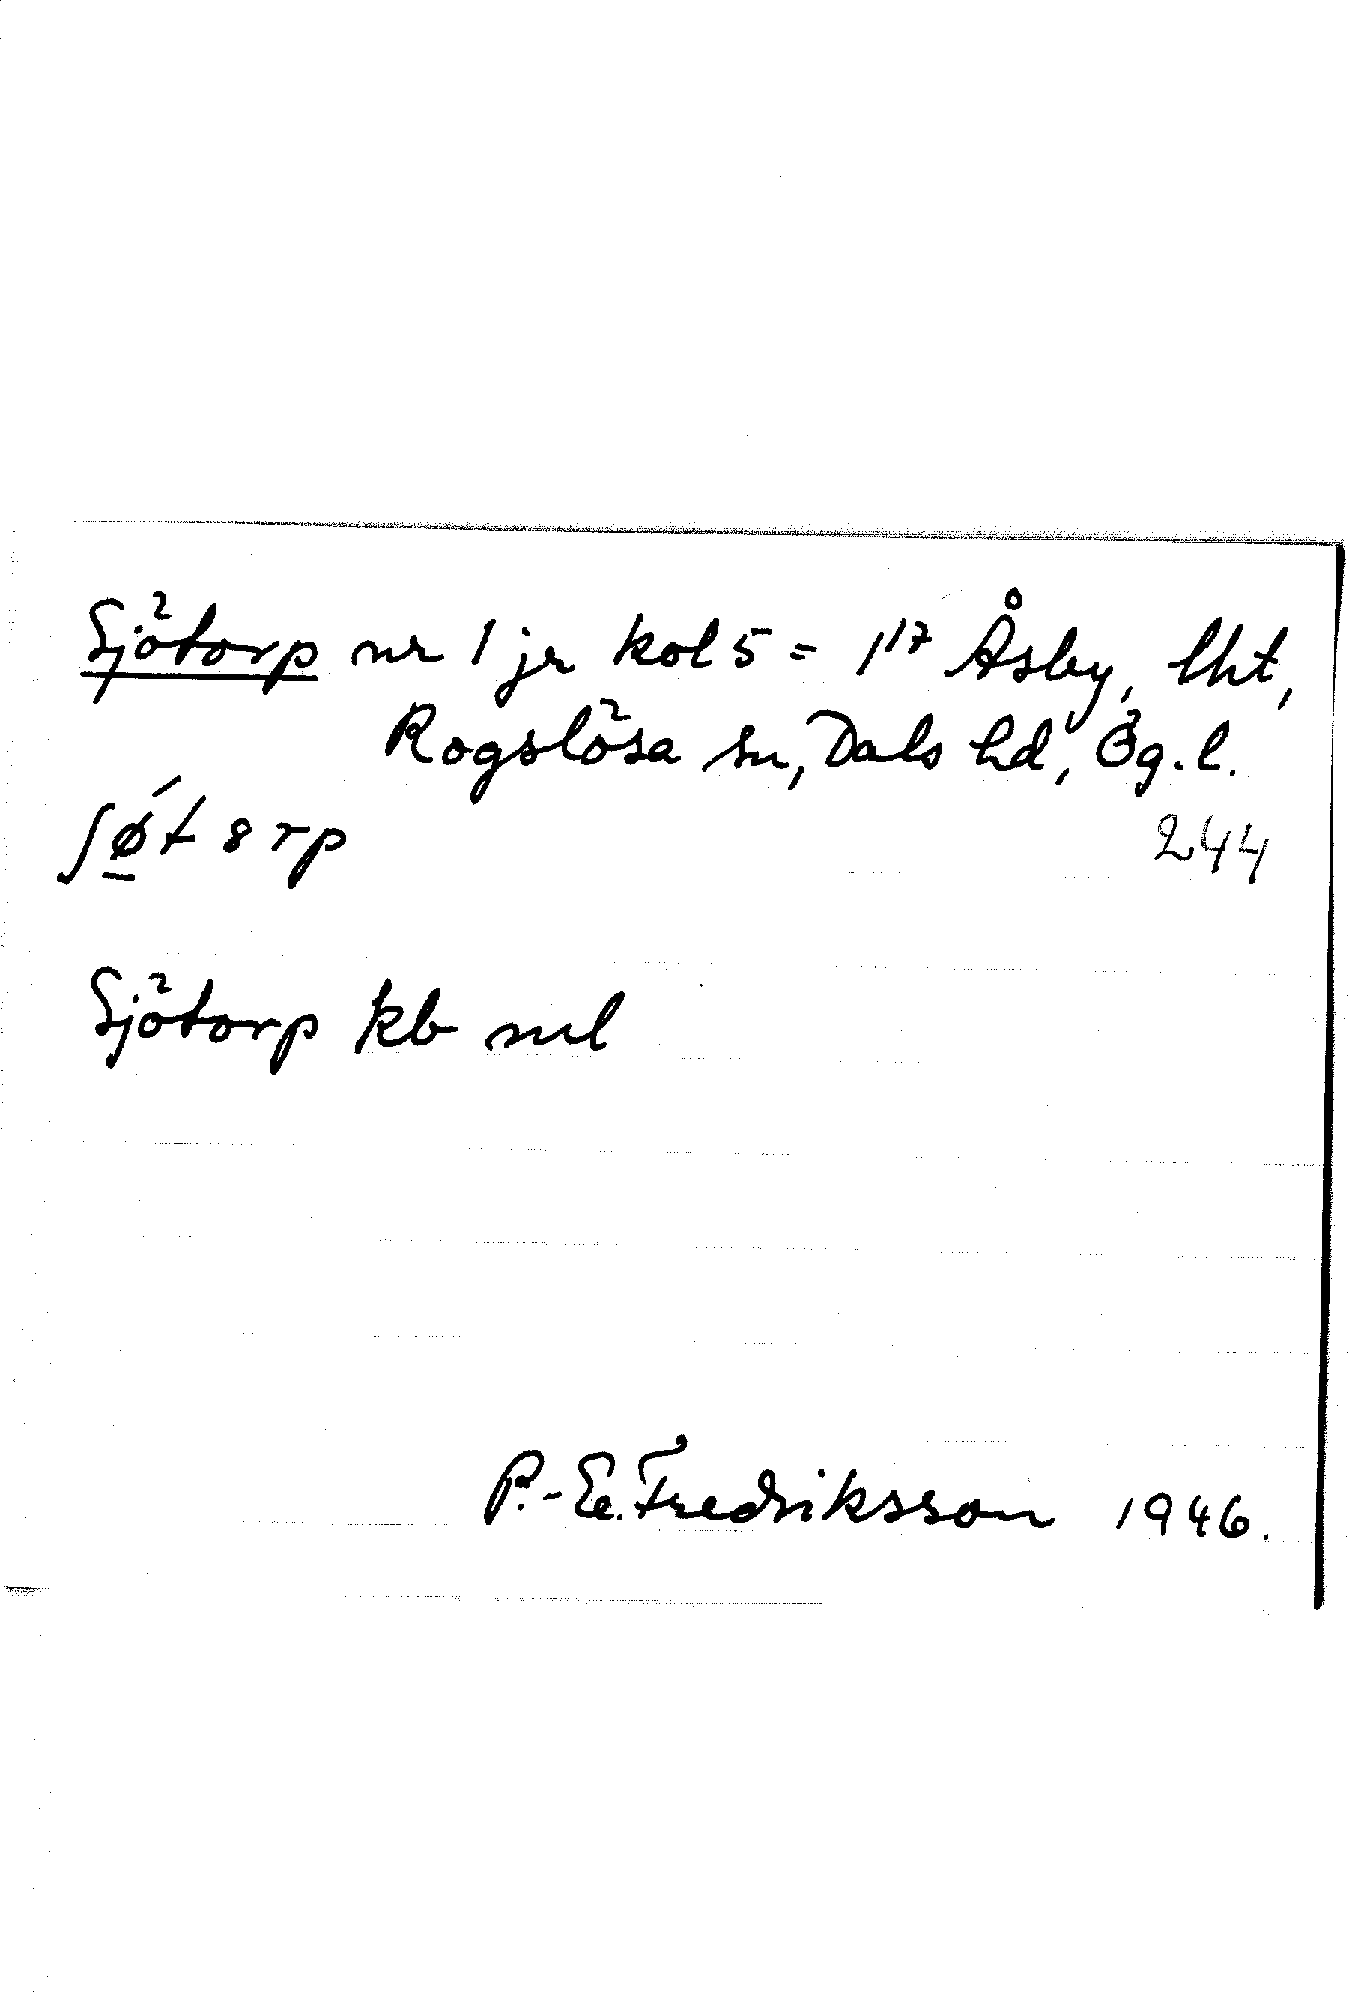 Sjötorp nr 1 jr kol 5 = 1¹⁷ Åsby, lht,
Rogslösa sn, Dals hd, Ög. l.
ʃǿ̱t 8 rp
244
Sjötorp kb ml
P.-E. Fredriksson 1946.